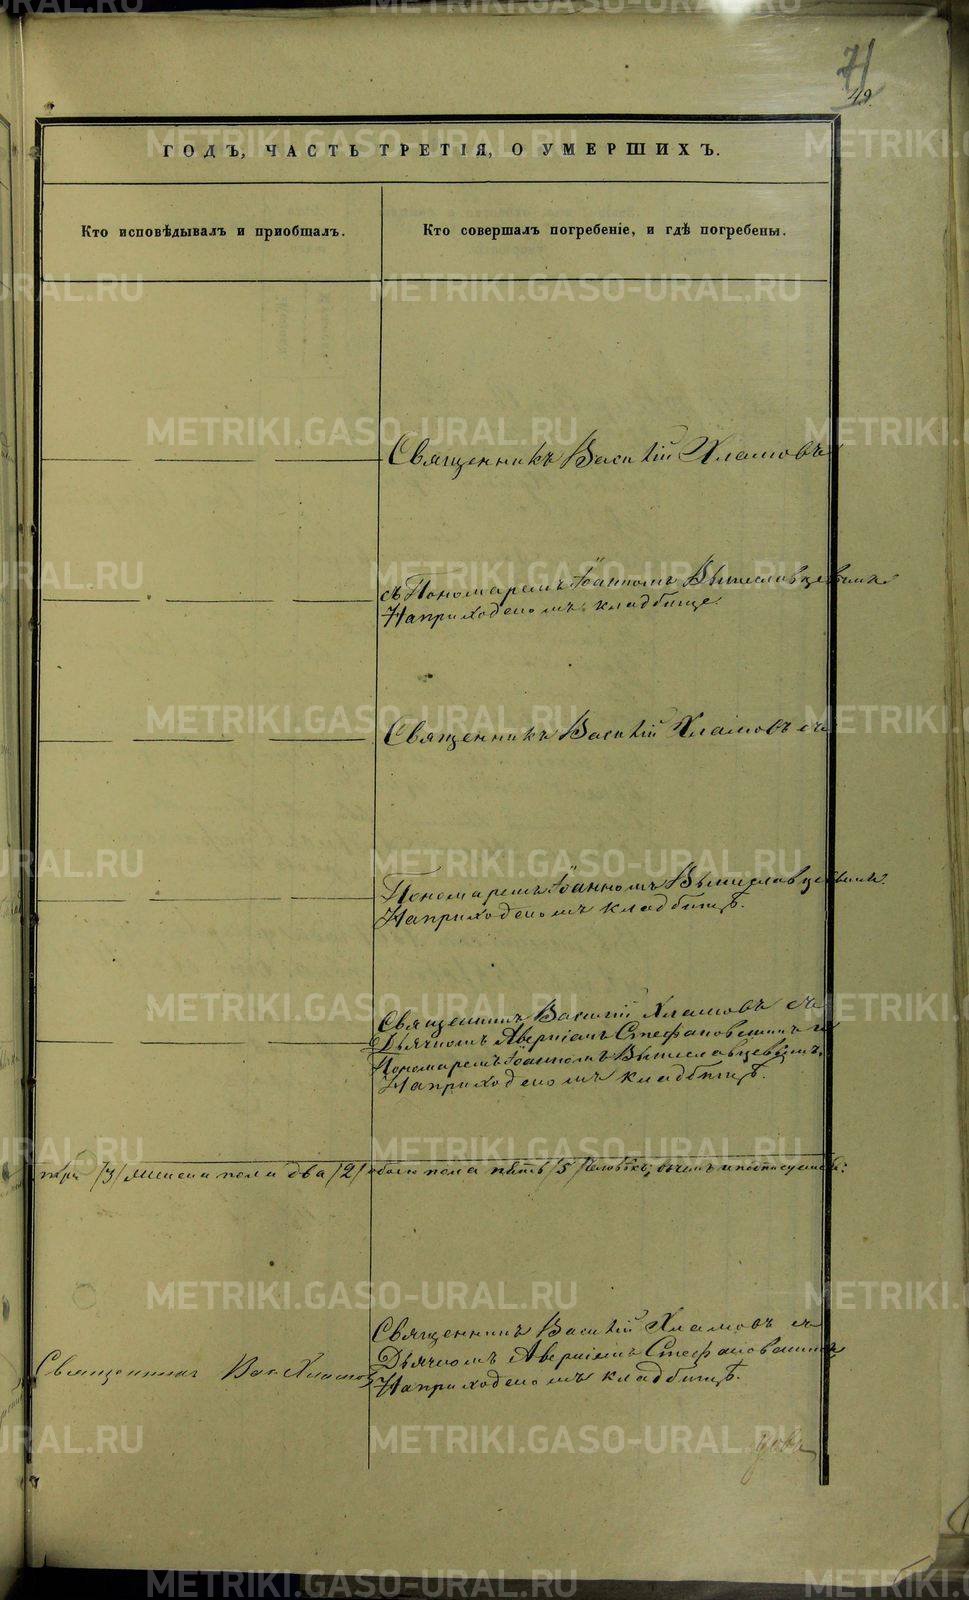 71
49.
ГОДЪ, ЧАСТЬ ТРЕТІЯ, О УМЕРШИХЪ.
Кто исповѣдывалъ и пріобщалъ.
Кто совершалъ погребеніе, и гдѣ погребены.
Священникъ Василій Хламовъ
съ Пономаремъ Іоанномъ Вышеславцевымъ
На приходскомъ кладбище.
Священникъ Василій Хламовъ съ
Пономаремъ Іоанномъ Вышеславцевымъ.
На приходскомъ кладбищѣ.
Священникъ Василій Хламовъ съ
Дьячкомъ Аверкіемъ Стефановскимъ и
Пономаремъ Іоанномъ Вышеславцевымъ.
На приходскомъ кладбищѣ.
три /3/ женска пола два /2/ обоего пола пять /5/ человѣкъ; въ чемъ и подписуемся:
Священникъ Василій Хламовъ съ
Дьячкомъ Аверкіемъ Стефановскимъ
На приходскомъ кладбищѣ.
Священникъ Вас. Хламовъ
METRIKI.GASO-URAL.RU